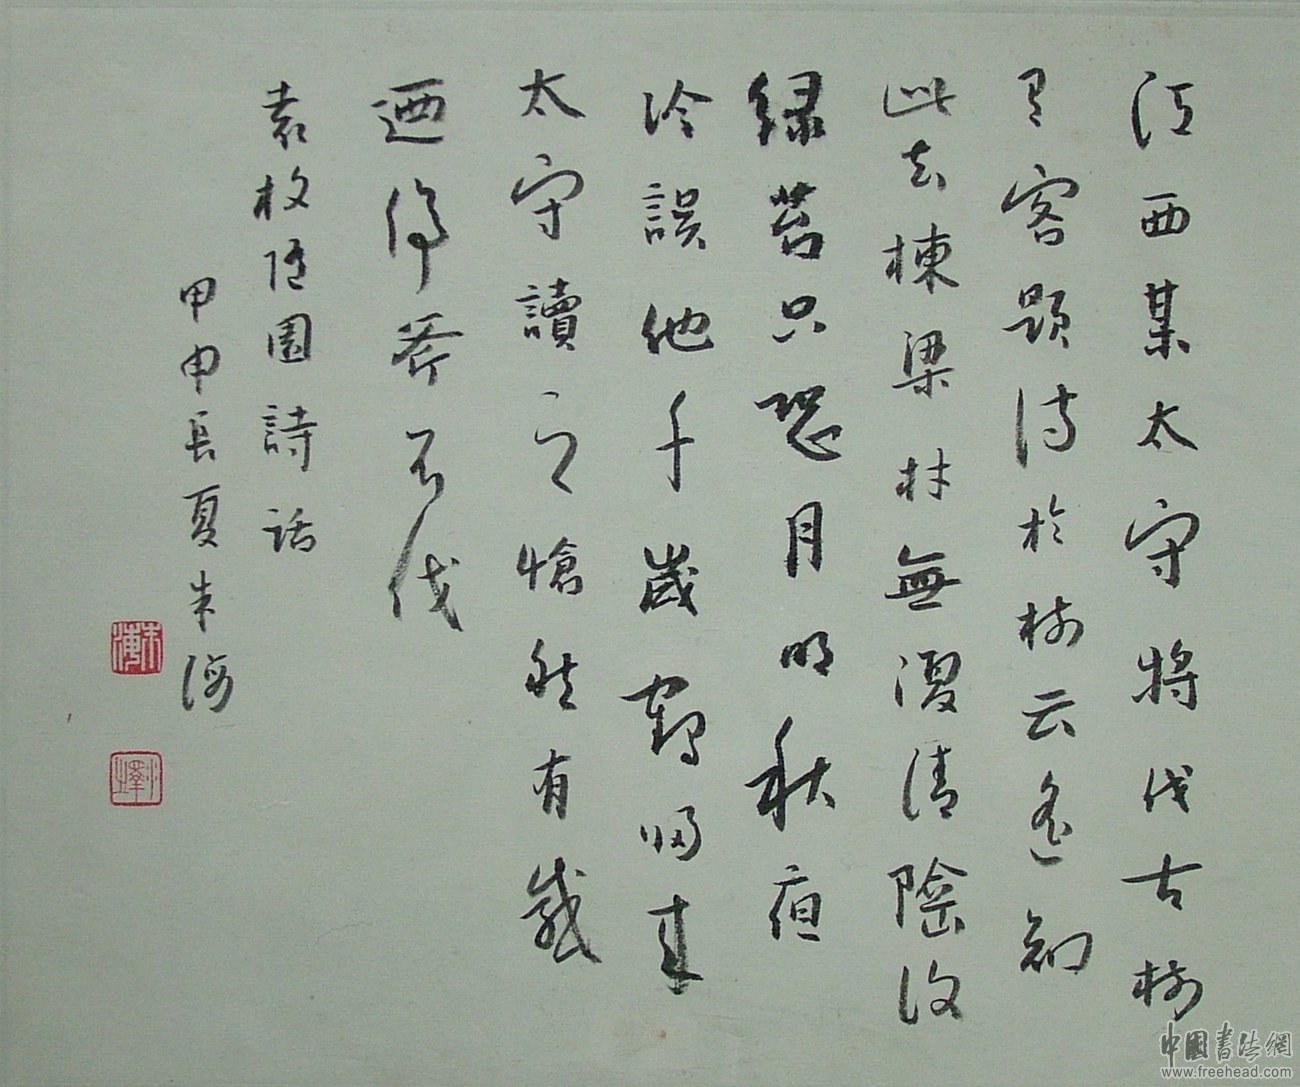 江西某太守將伐古樹
有客題詩於樹云遙知
此去棟梁材無復清陰復
綠苔只恐月明秋夜
冷誤他千歲鶴歸來
太守讀之愴然有感
迺停斧不伐
袁枚隨園詩話
甲申長夏朱海
中國書法網
www.freehead.com